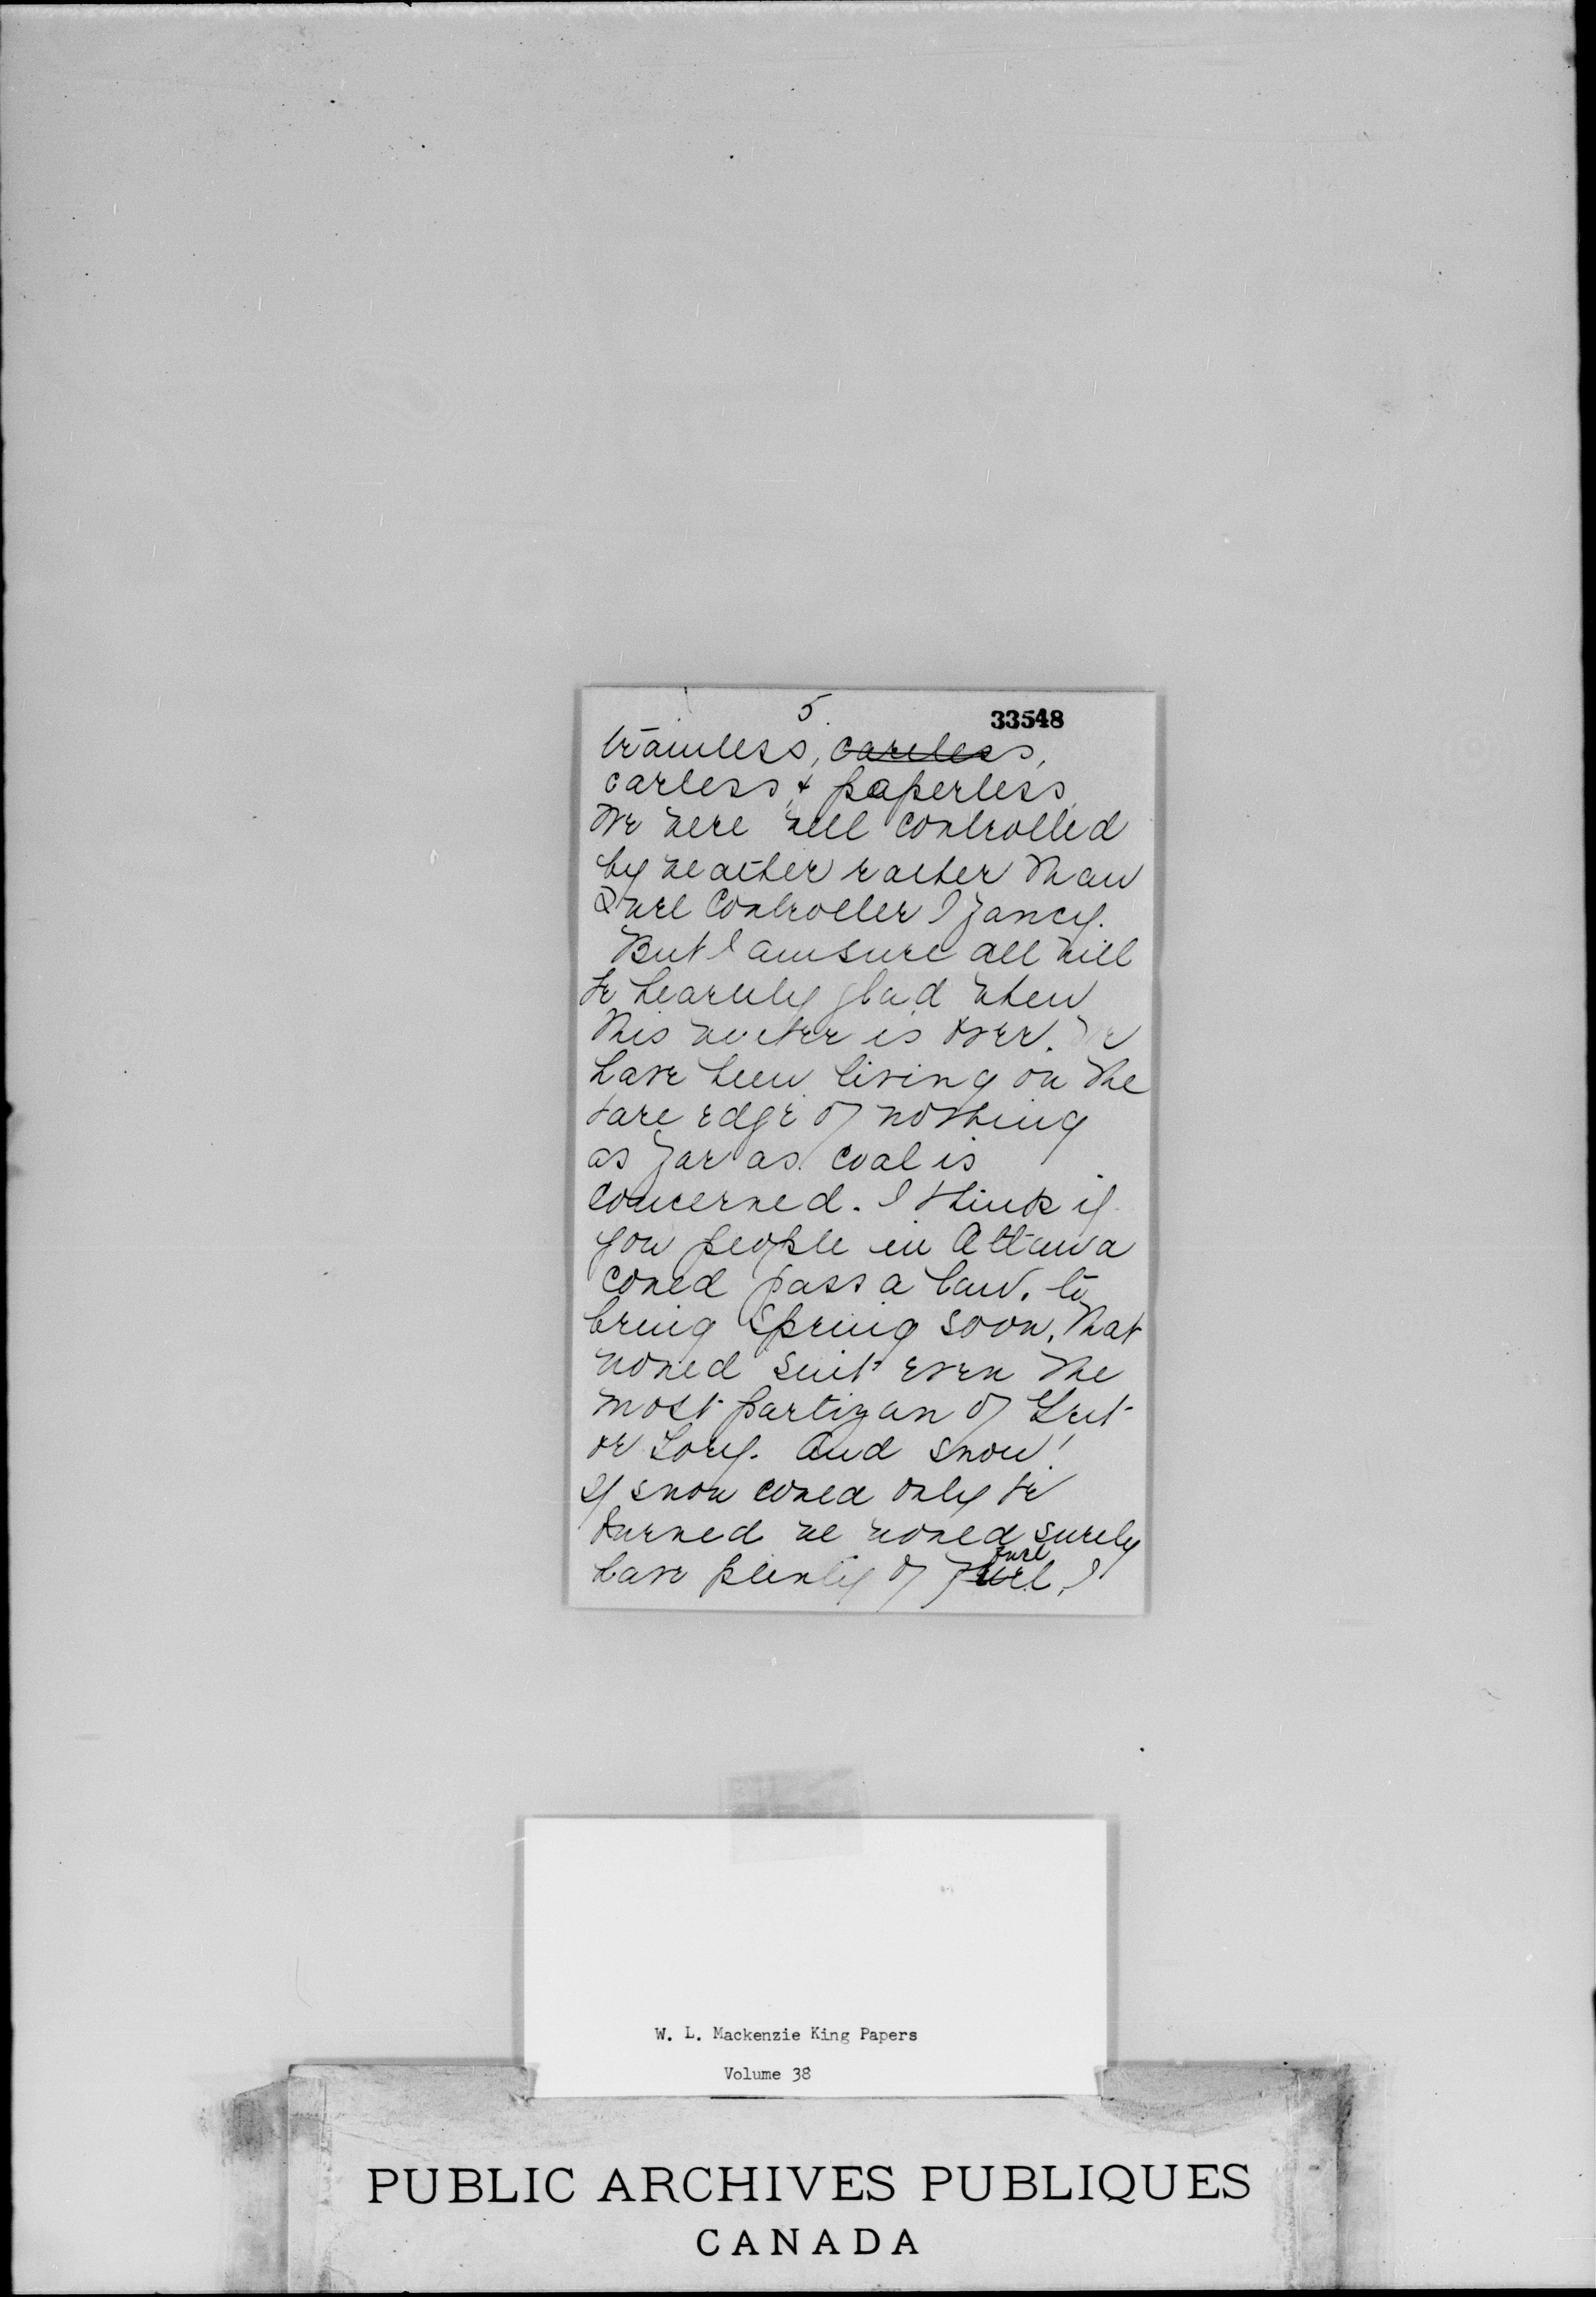 5.
33548
trainless, careless,
carless, & paperless.
We were well controlled
by weather rather than
Fuel Controller I fancy.
But I am sure all will
be heartily glad when
this winter is over. We
have been living on the
bare edge of nothing
as far as coal is
concerned. I think if
you people in Ottawa
could pass a law, to
bring Spring soon, that
would suit even the
most partizan of Grit
or Tory. And snow!
If snow could only be
burned we would surely
fuel
have plenty of fuel, I
W. L. Mackenzie King Papers
Volume 38
PUBLIC ARCHIVES PUBLIQUES
CANADA